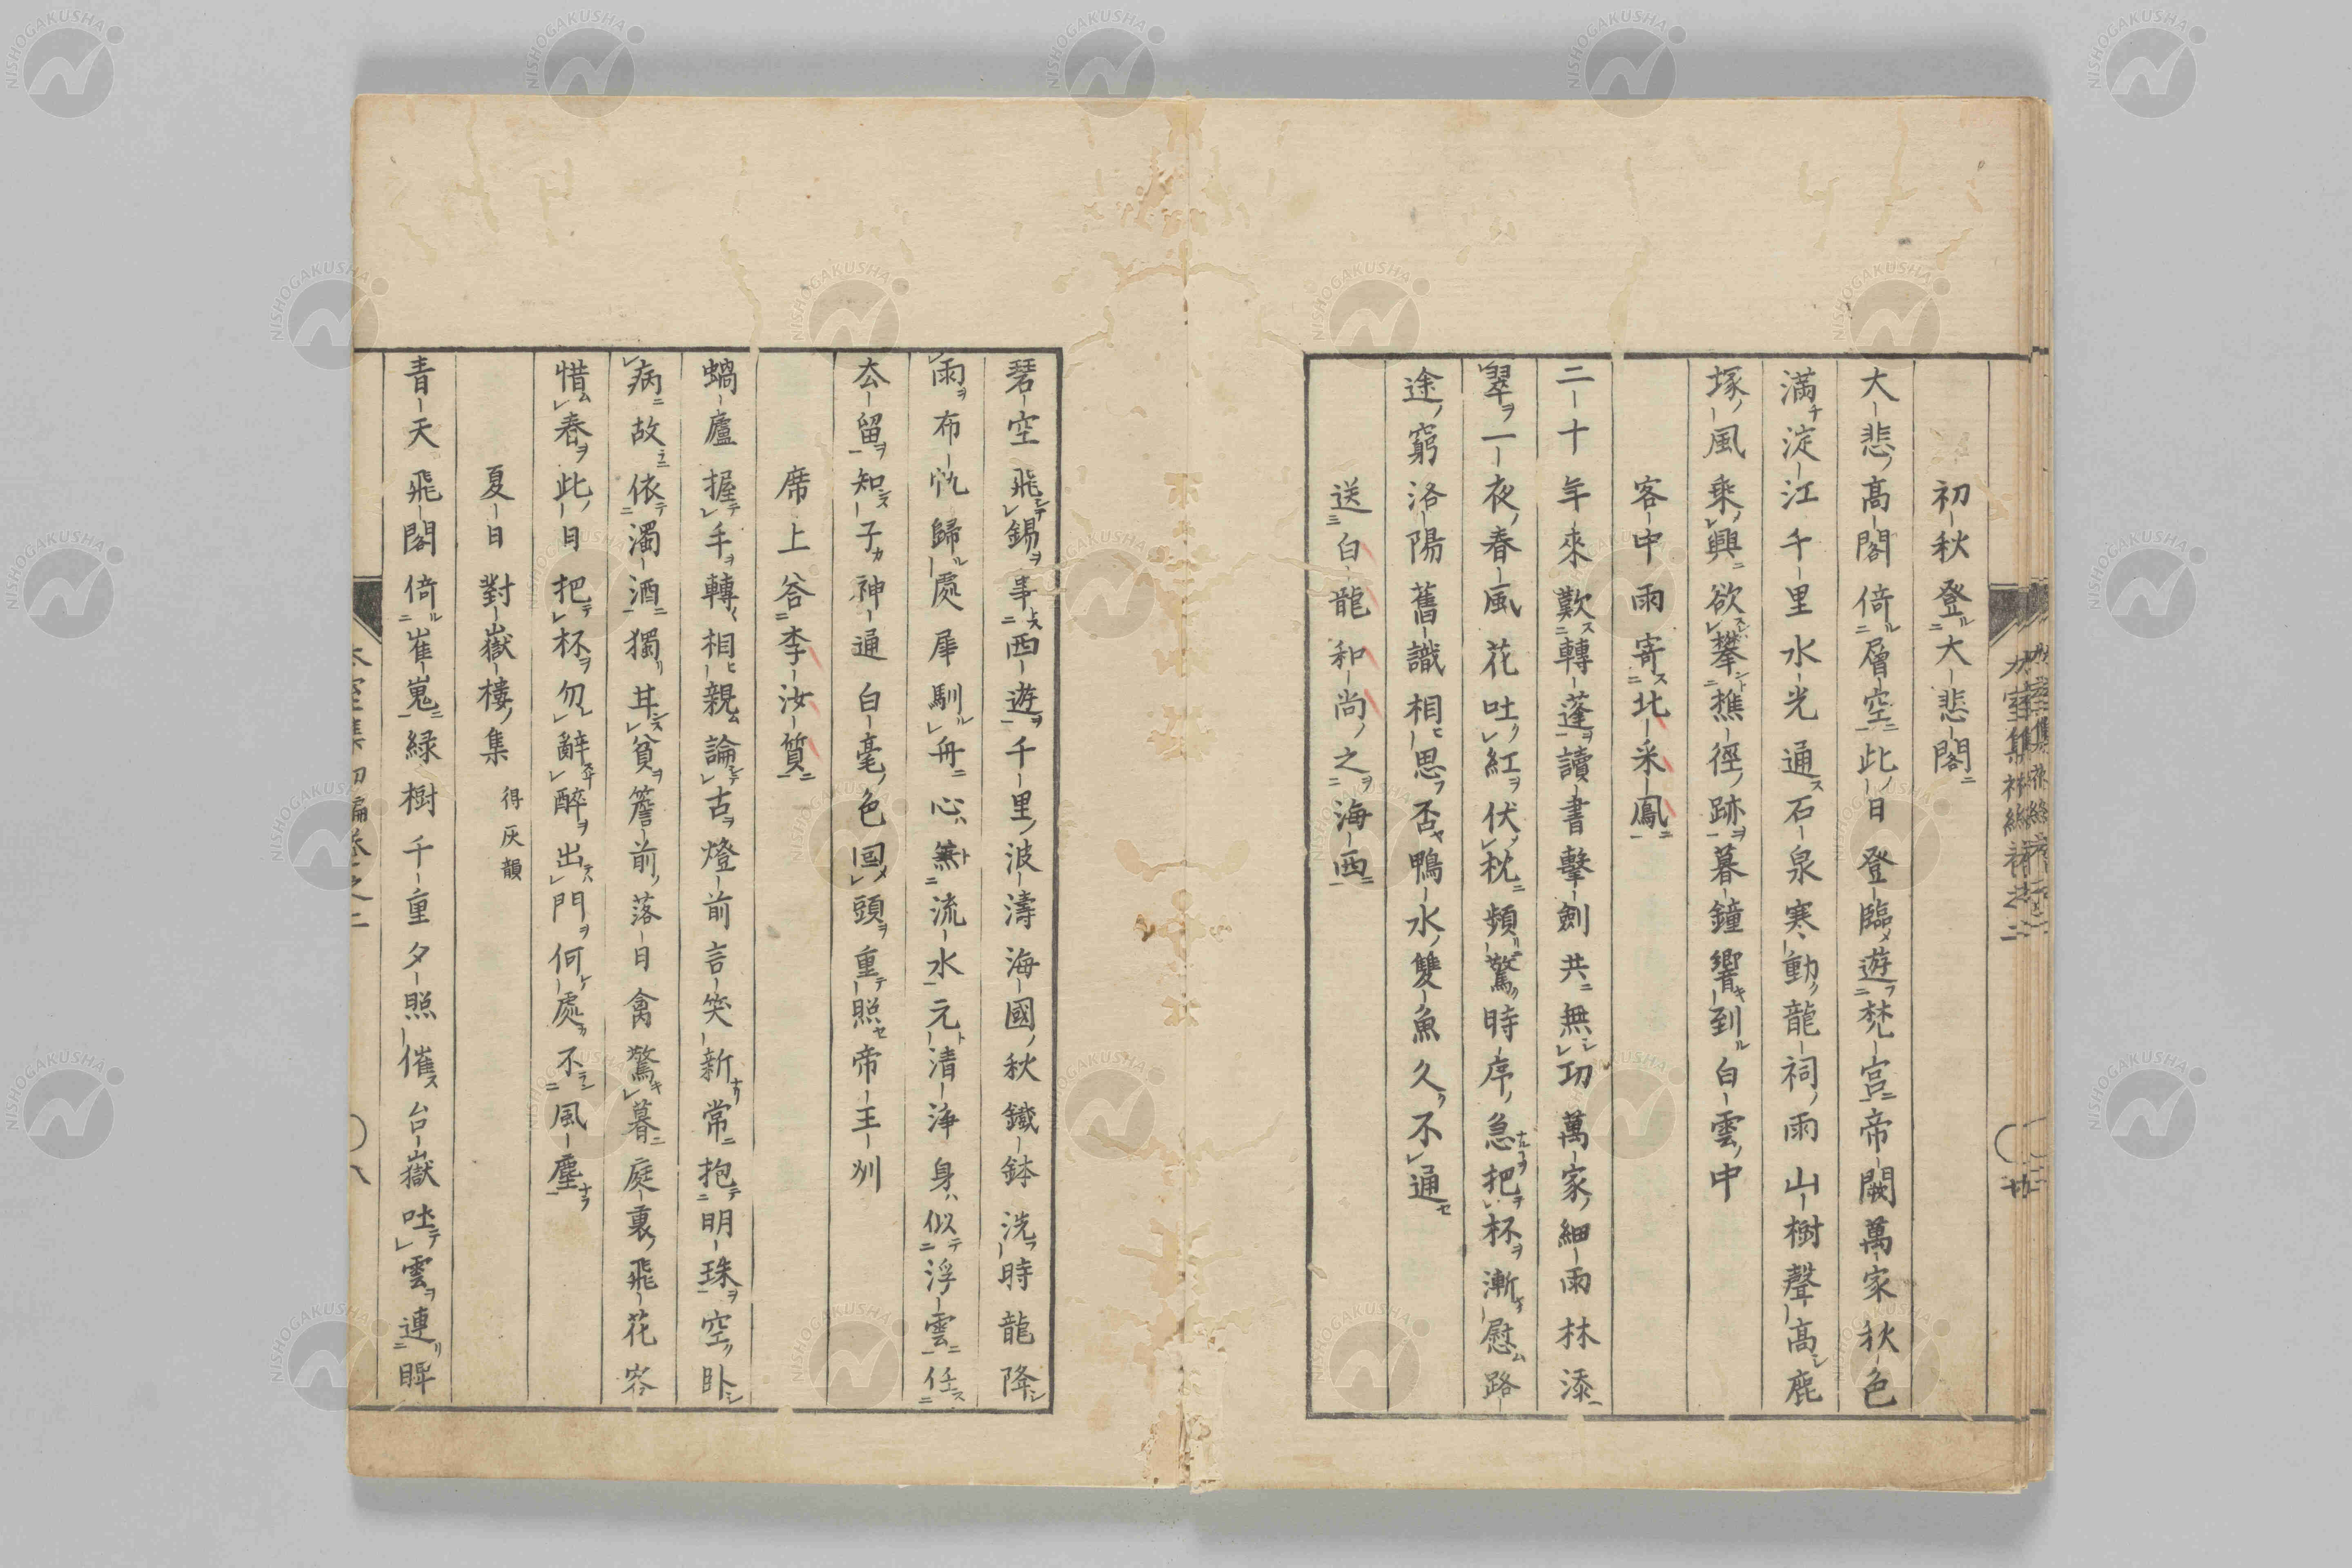 初秋登大悲閣
大悲高閣倚層空此日登臨遊梵宮帝闕萬家秋色
滿淀江千里水光通石泉寒動龍祠雨山樹聲高鹿
塚風乘興欲攀樵徑跡暮鐘響到白雲中
客中雨寄北采鳳
二十年來歎轉蓬讀書擊劍共無功萬家細雨林添
翠一夜春風花吐紅伏枕頻驚時序急把杯漸慰路
途窮洛陽舊識相思否鴨水雙魚久不通
送白龍和尚之海西
碁空飛錫事西遊千里波濤海國秋鐵鉢洗時龍降
雨布帆歸處犀馴舟心無流水元清淨身似浮雲任
去留知子神通白毫色回頭重照帝王州
席上答李汝質
蝸廬握手轉相親論古燈前言笑新常抱明珠空臥
病故依濁酒獨甘貧簷前落日禽驚暮庭裏飛花客
惜春此日把杯勿辭醉出門何處不風塵
夏日對嶽樓集 得灰韻
青天飛閣倚崔嵬綠樹千重夕照催台嶽吐雲連睥
NISHOGAKUSHA